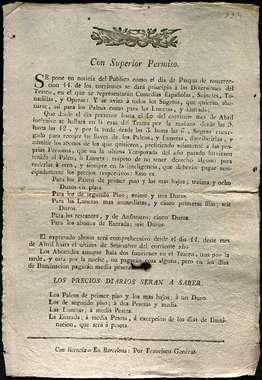 Con Superior Permiso.
SE pone en noticia del Publico como el dia de Pasqua de resurrec-
cion 14. de los corrientes se dará principio á las Diversiones del
Teatro, en el que se representarán Comedias Españolas, Saynetes, To-
nadillas, y Operas: Y se avisa á todos los Sugetos, que quieran abo-
narse, así para los Palcos como para las Lunetas, y Entrada;
Que desde el dia presente hasta el 10 del corriente mes de Abril
inclusive se hallará en la casa del Teatro por la mañana desde las 9.
hasta las 12, y por la tarde desde las 3. hasta las 6, Sugeto encar-
gado para recoger las llaves de los Palcos, y Lunetas, distribuirlas, y
admitir los abonos de los que quisieren, prefiriendo puntualmente á las pro-
pias Personas, que en la ultima Temporada del año pasado
tenido el Palco, ó Luneta; respeto de no tener derecho alguno para
cederlas á otro, y siempre en la inteligencia, que deberán pagar
equitativos los precios respectivos: Esto es
Para los Palcos de primer piso y los mas bajos, treinta y ocho
Duros en plata.
Para los de segundo Piso, veinte y dos Duros.
Para las Lunetas mas inmediatas, y cinco primeras filas; seis
Duros.
Para las restantes, y de Anfiteatro; cinco Duros.
Para los abonos de Entrada; seis Duros.
El expresado abono será comprehensivo desde el dia 14. deste mes
de Abril hasta el ultimo de Setiembre del corriente año
Los Abonados aunque haia dos funciones en el Teatro, una por la
tarde, y otra por la noche, no pagarán cosa alguna, pero en los dias
de Iluminacion pagarán media peseta.
LOS PRECIOS DIARIOS SERÁN A SABER.
Los Palcos de primer piso y los mas bajos; á un Duro.
Los de segundo piso; á dos Pesetas y media.
Las Lunetas, á media Peseta.
La Entrada; á media Peseta, á excepcion de los dias de Ilumi-
nacion, que será á peseta.
Con licencia = En Barcelona: Por Francisco Generas.